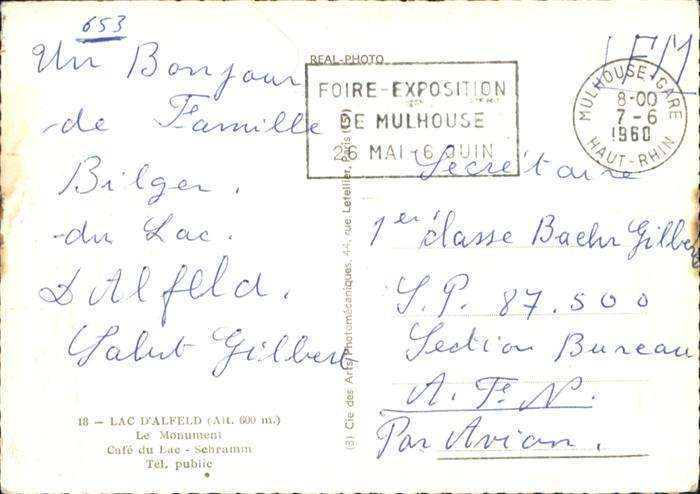 653
Un Bonjour
de Famille
Bilger.
du Lac.
D'Alfeld.
Salut Gilbert
18 — LAC D'ALFELD (Alt. 600 m.)
Le Monument
Café du Lac - Schramm
Tél. public
REAL-PHOTO
(3) Cie des Arts Photomécaniques, 44, rue Letellier, Paris (15)
FOIRE-EXPOSITION
DE MULHOUSE
26 MAI - 6 JUIN
MULHOUSE-GARE
8-00
7-6
1960
HAUT-RHIN
F M
Secrétaire
1er classe Baehr Gilbert
S.P. 87.500
Section Bureau
A.F.N.
Par Avion.